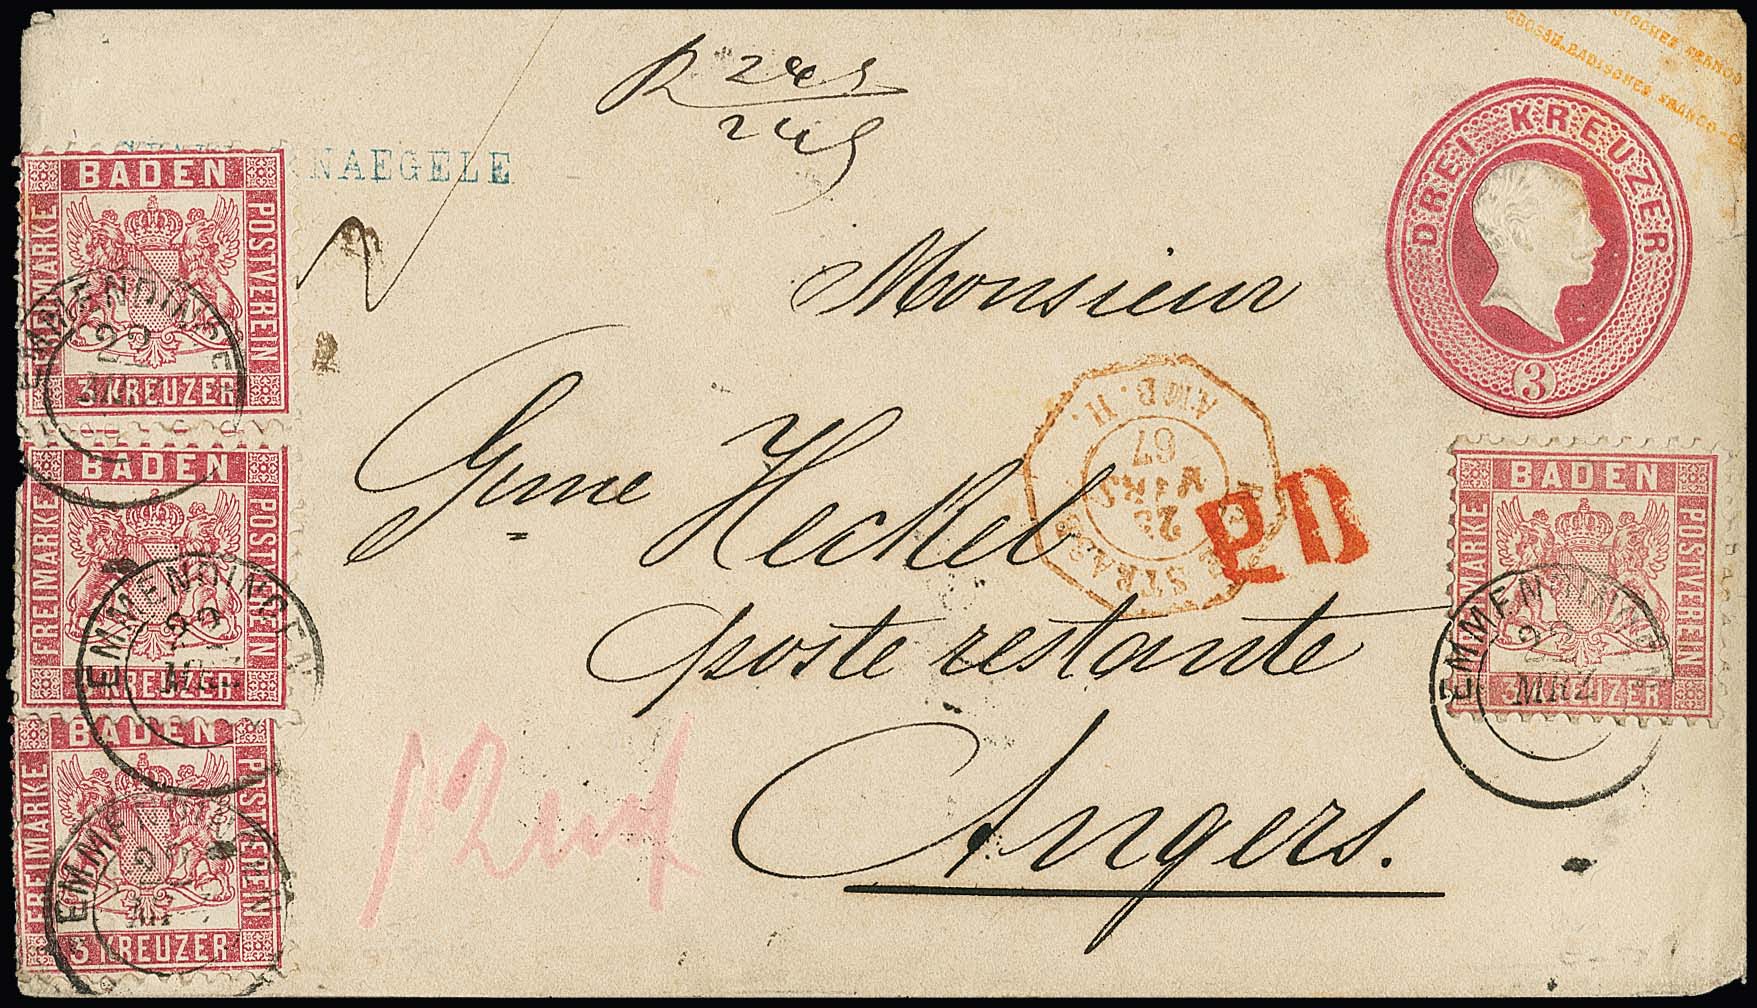 DISCHES FRANCO
GROSSH. BADISCHES FRANCO-C
NAEGELE
DREI KREUZER
3
BADEN
FREIMARKE
POSTVEREIN
3 KREUZER
EMMENDINGEN
22
BADEN
FREIMARKE
POSTVEREIN
3 KREUZER
EMMENDINGEN
22
BADEN
FREIMARKE
POSTVEREIN
3 KREUZER
EMMENDINGEN
BADEN
FREIMARKE
POSTVEREIN
3 KREUZER
EMMENDINGEN
22
MRZ
Monsieur
Gme Heckel
poste restante
Angers.
STRASB
23
MARS
67
AMB. H.
P.D